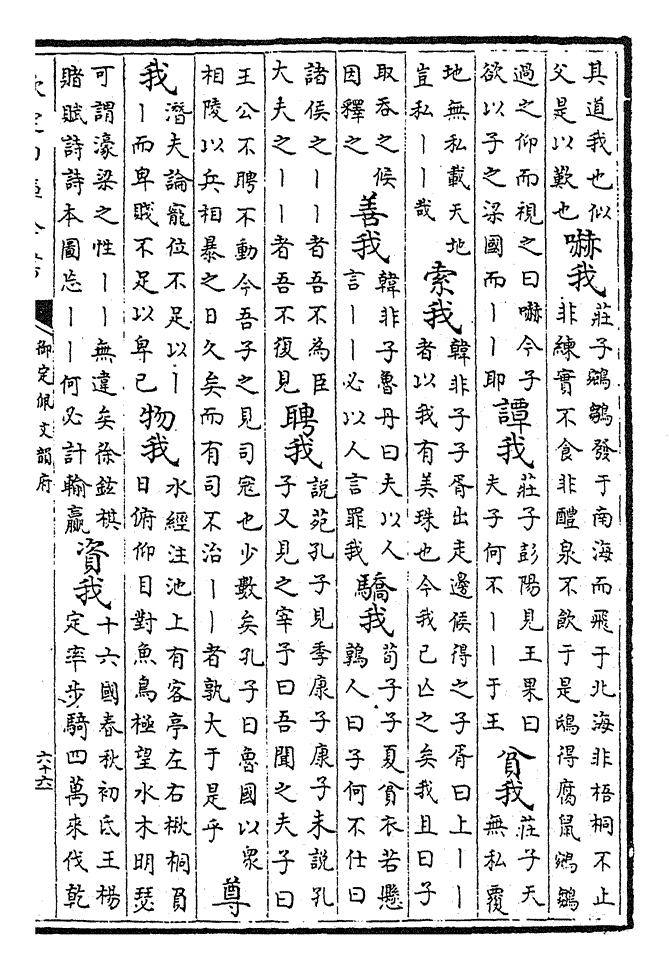 其道我也似
父是以歎也
嚇我
莊子鵷鶵發于南海而飛于北海非梧桐不止
非練實不食非醴泉不飲于是鴟得腐鼠鵷鶵
過之仰而視之曰嚇今子
欲以子之梁國而丨丨耶
譚我
莊子彭陽見王果曰
夫子何不丨丨于王
貧我
莊子天
無私覆
地無私載天地
豈私丨丨哉
索我
韓非子子胥出走邊候得之子胥曰上丨丨
者以我有美珠也今我已亡之矣我且曰子
取吞之候
因釋之
善我
韓非子魯丹曰夫以人
言丨丨必以人言罪我
驕我
荀子子夏貧衣若懸
鶉人曰子何不仕曰
諸侯之丨丨者吾不為臣
大夫之丨丨者吾不復見
聘我
說苑孔子見季康子康子未說孔
子又見之宰子曰吾聞之夫子曰
王公不聘不動今吾子之見司宼也少數矣孔子曰魯國以衆
相陵以兵相暴之日久矣而有司不治丨丨者孰大于是乎
尊
我
潛夫論寵位不足以丨
丨而卑賤不足以卑已
物我
水經注池上有客亭左右楸桐負
日俯仰目對魚鳥極望水木明瑟
可謂濠梁之性丨丨無違矣徐鉉棋
賭賦詩詩本圖忘丨丨何必計輸贏
資我
十六國春秋初氐王楊
定率步騎四萬來伐乾
御定佩文韻府
六十六